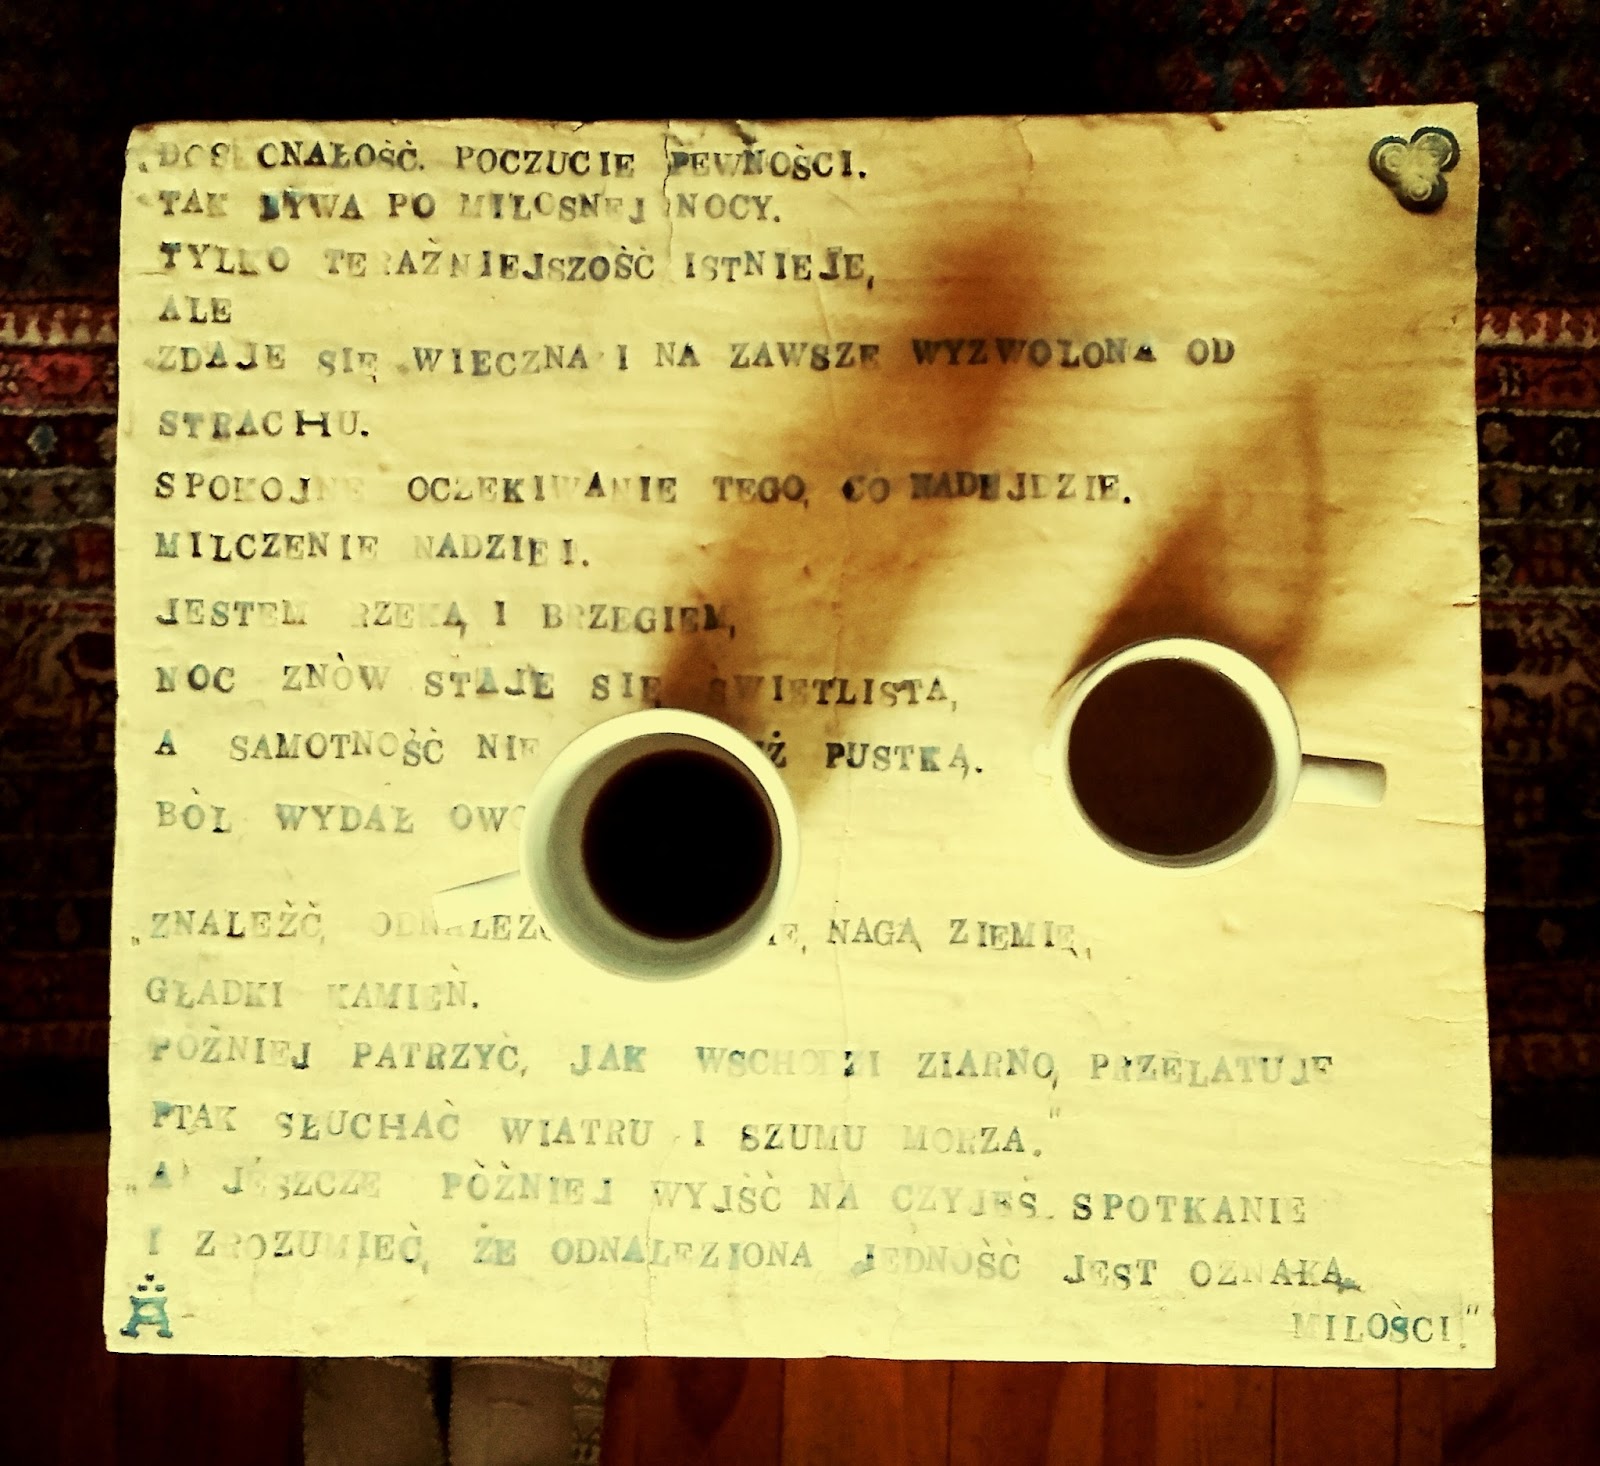 „DOSKONAŁOŚĆ. POCZUCIE PEWNOŚCI.
TAK BYWA PO MIŁOSNEJ NOCY.
TYLKO TERAŹNIEJSZOŚĆ ISTNIEJE,
ALE
ZDAJE SIĘ WIECZNA I NA ZAWSZE WYZWOLONA OD
STRACHU.
SPOKOJNE OCZEKIWANIE TEGO, CO NADEJDZIE.
MILCZENIE NADZIEI.
JESTEM RZEKĄ I BRZEGIEM,
NOC ZNÓW STAJE SIĘ ŚWIETLISTA,
A SAMOTNOŚĆ NIE PUSTKĄ.
BÓL WYDAŁ
„ZNALEŹĆ, NAGĄ ZIEMIĘ,
GŁADKI KAMIEŃ.
PÓŹNIEJ PATRZYĆ, JAK WSCHODZI ZIARNO, PRZELATUJE
PTAK SŁUCHAĆ WIATRU I SZUMU MORZA."
„A JESZCZE PÓŹNIEJ WYJŚĆ NA CZYJEŚ SPOTKANIE
I ZROZUMIEĆ, ŻE ODNALEZIONA JEDNOŚĆ JEST OZNAKĄ
MIŁOŚCI."